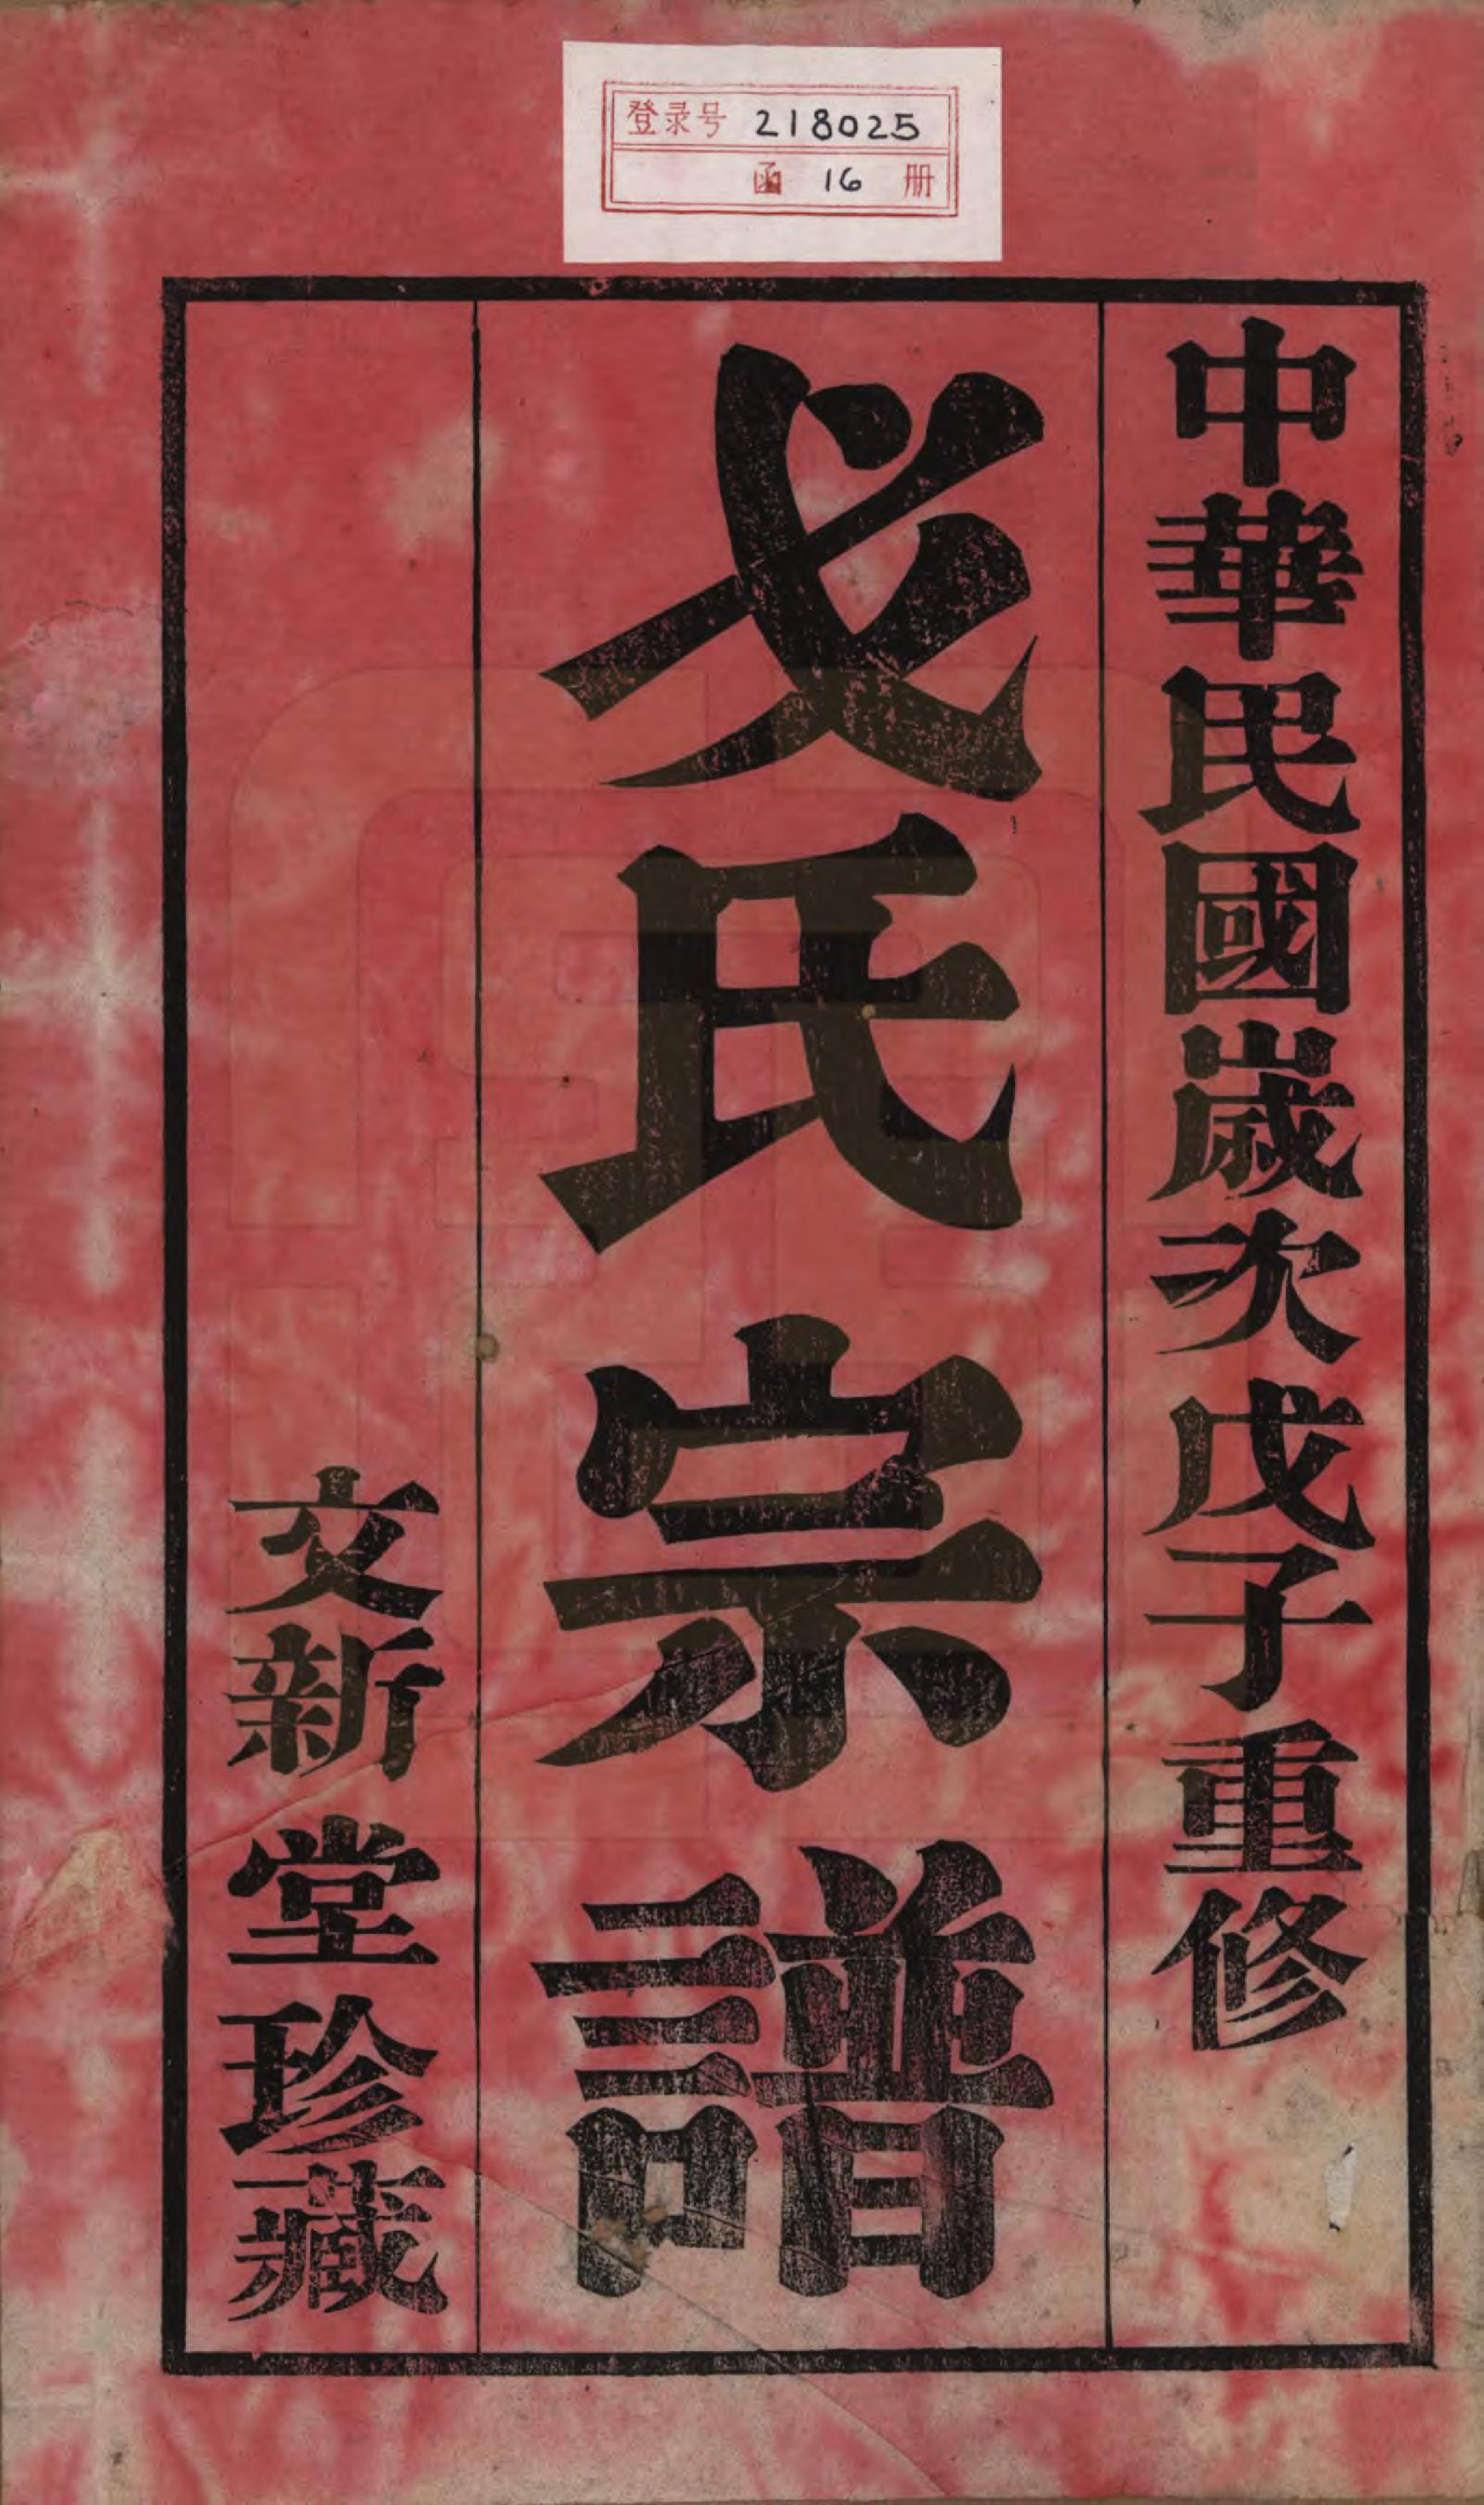 登录号 218025
函 16 册
中華民國歲次戊子重修
戈氏宗譜
文新堂珍藏